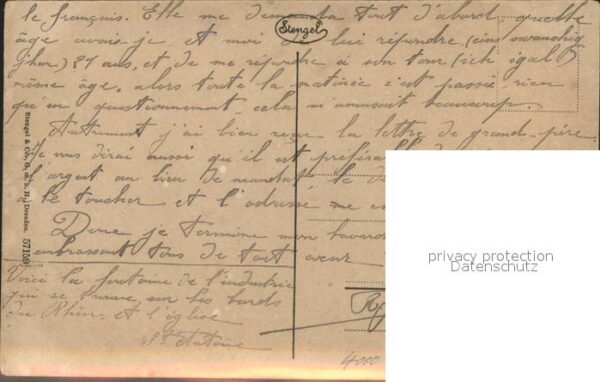 le français. Elle me demanda tout d'abord quelle
âge avais-je et moi lui répondre (eins
21 ans, et de me répondre à son tour (ich igal
même âge, alors toute la matinée c'est passé rien
qu'en questionnement cela m'amusait beaucoup.
Autrement j'ai bien reçu la lettre de grand-père.
Je vous dirai aussi qu'il est préférable
l'argent au lieu de mandat le
à le toucher et l'adresse me
Donc je termine mon
embrassant tous de tout cœur
Voici la fontaine de l'industrie
qui se trouve sur les bords
du Rhin et l'église
St Antoine
Stengel
Stengel & Co., G. m. b. H., Dresden. 57159
privacy protection
Datenschutz
4000